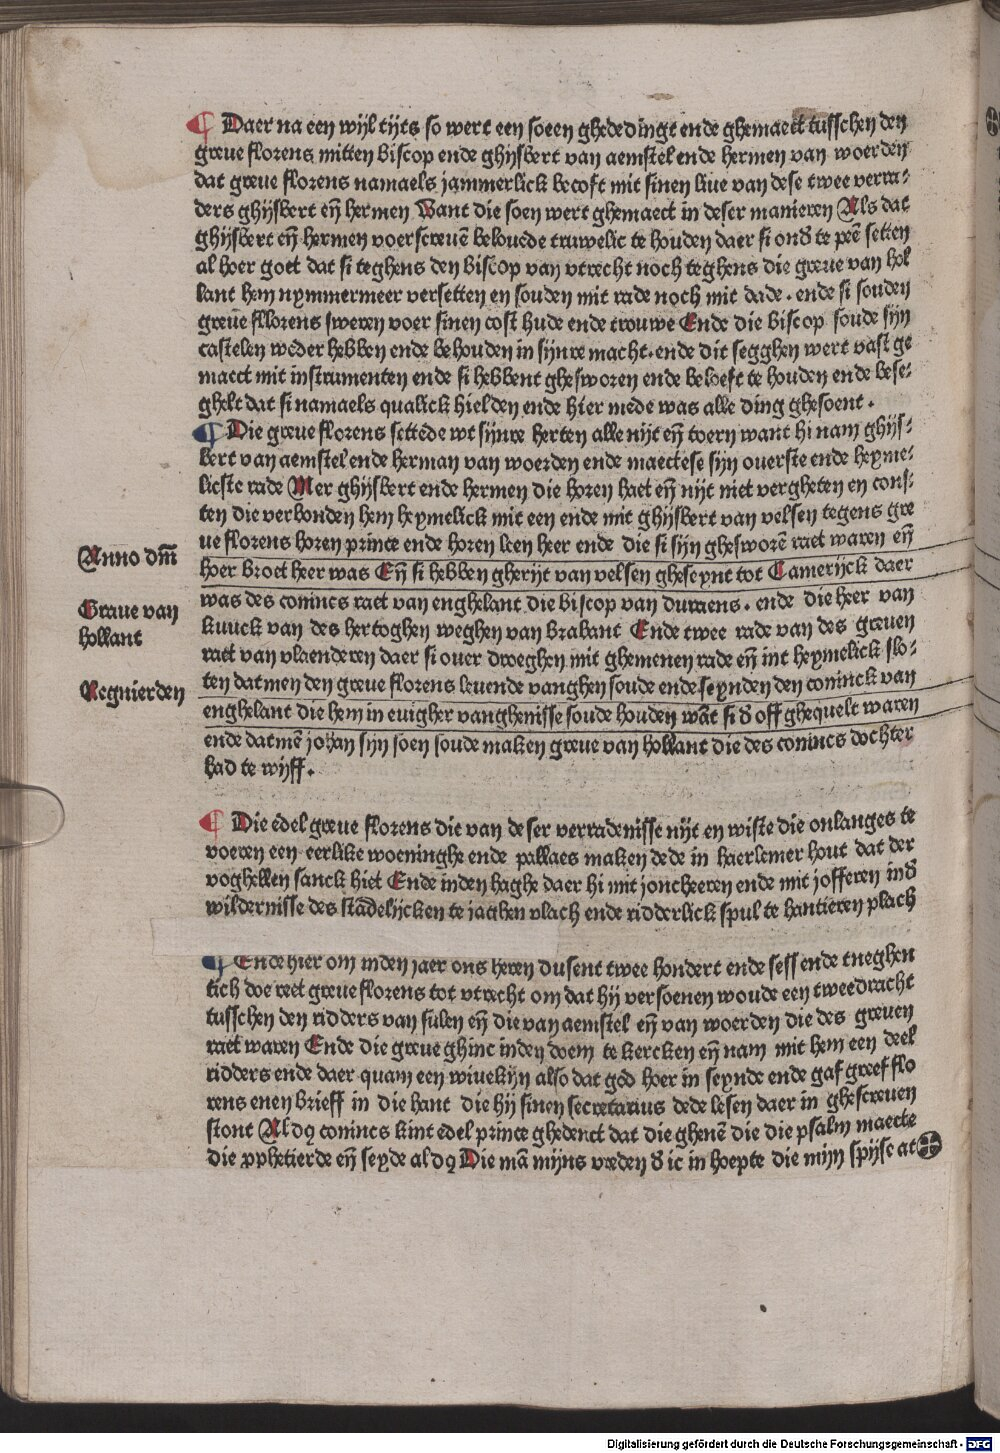 ¶ Daer na een wijl tijts so wert een soeen ghededingt ende ghemaect tusschen den
greue florens mitten biscop ende ghijsbert van aemstel ende hermen van woerden
dat greue florens namaels jammerlick becoft mit sinen liue van dese twee verra⸗
ders ghijsbert eñ hermen Want die soen wert ghemaect in deser manieren Als dat
ghijsbert eñ hermen voerscreuē beloucde truwelic te houden daer si onđ te peē setten
al hoer goet dat si teghens den biscop van vtrecht noch teghens die greue van hol
lant hem nymmermeer versetten en souden mit rade noch mit dade. ende si souden
greue fflorens sweren voer sinen cost hude ende trouwe Ende die biscop soude sijn
castelen weder hebben ende behouden in sijnre macht. ende dit segghen wert vast ge
maect mit instrumenten ende si hebbent ghesworen ende beloeft te houden ende bese⸗
ghelt dat si namaels qualick hielden ende hier mede was alle ding ghesoent.
¶ Die greue florens settede wt sijnre herten alle nijt eñ toern want hi nam ghijs⸗
bert van aemstel ende herman van woerden ende maectese sijn ouerste ende heyme⸗
licste rade Mer ghijsbert ende hermen die horen haet eñ nijt niet vergheten en cons⸗
ten die verbonden hem heymelick mit een ende mit ghijsbert van velsen tegens gre
ue florens horen prince ende horen leen heer ende die si sijn ghesworē raet waren eñ
Anno dm̄
hoer broet heer was Eñ si hebben gherijt van velsen gheseynt tot Camerijck daer
was des conincs raet van enghelant die biscop van duraens. ende die heer van
Graue van
hollant
kuuck van des hertoghen weghen van brabant Ende twee rade van des greuen
raet van vlaenderen daer si ouer droeghen mit ghemenen rade eñ int heymelick slo⸗
Regnierden
ten datmen den greue florens leuende vanghen soude ende seynden den coninck van
enghelant die hem in euigher vanghenisse soude houden wāt si đ off ghequelt waren
ende datmē johan sijn soen soude maken greue van hollant die des conincs dochter
had te wijff.
¶ Die edel greue florens die van deser verradenisse nijt en wiste die onlanges te
voeren een eerlike woeninghe ende pallaes maken dede in haerlemer hout dat der
voghellen sanck hiet Ende inden haghe daer hi mit joncheeren ende mit jofferen inđ
wildernisse des stādelijcken te jaghen vlach ende ridderlick spul te hantieren plach
¶ Ende hier om inden jaer ons heren dusent twee hondert ende sess ende tneghen
tich doe reet greue florens tot vtrecht om dat hij versoenen woude een tweedracht
tusschen den ridders van sulen eñ die van aemstel eñ van woerden die des greuen
raet waren Ende die greue ghinc inden doem te kercken eñ nam mit hem een deel
ridders ende daer quam een wiuekijn also dat god hoer in seynde ende gaf greef flo
rens enen brieff in die hant die hij sinen secretarius dede lesen daer in ghescreuen
stont Aldꝰ conincs kint edel prince ghedenct dat die ghenē die die psalm maecte
die ꝓphetierde eñ seyde aldꝰ Die mā mijns vreden đ ic in hoepte die mijn spijse at
Digitalisierung gefördert durch die Deutsche Forschungsgemeinschaft - DFG